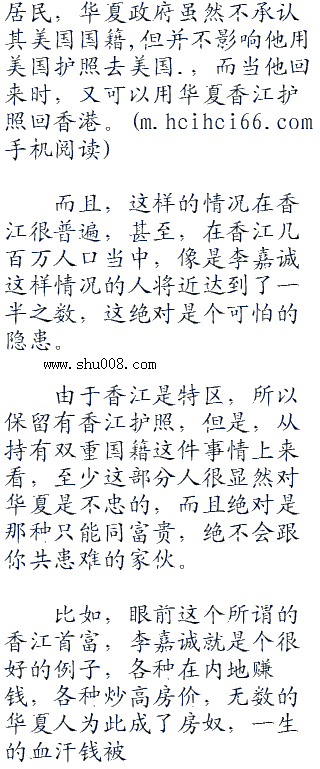 居民，华夏政府虽然不承认
其美国国籍,但并不影响他用
美国护照去美国.，而当他回
来时，又可以用华夏香江护
照回香港。(m.hcihci66.com
手机阅读)
而且，这样的情况在香
江很普遍，甚至，在香江几
百万人口当中，像是李嘉诚
这样情况的人将近达到了一
半之数，这绝对是个可怕的
隐患。
www.shu008.com
由于香江是特区，所以
保留有香江护照，但是，从
持有双重国籍这件事情上来
看，至少这部分人很显然对
华夏是不忠的，而且绝对是
那种只能同富贵，绝不会跟
你共患难的家伙。
比如，眼前这个所谓的
香江首富，李嘉诚就是个很
好的例子，各种在内地赚
钱，各种炒高房价，无数的
华夏人为此成了房奴，一生
的血汗钱被